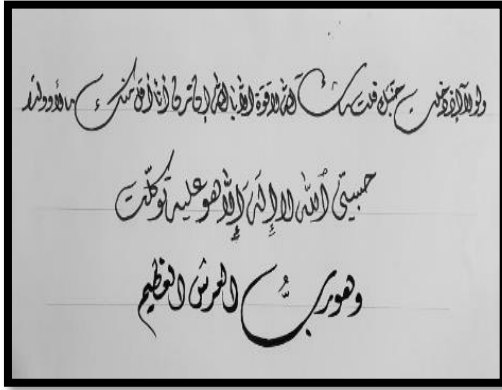 ولولا إذ دخلت جنتك قلت ما شاء الله لا قوة إلا بالله إن ترن أنا أقل منك مالا وولدا
حسبي الله لا إله إلا هو عليه توكلت
وهو ربُّ العرش العظيم